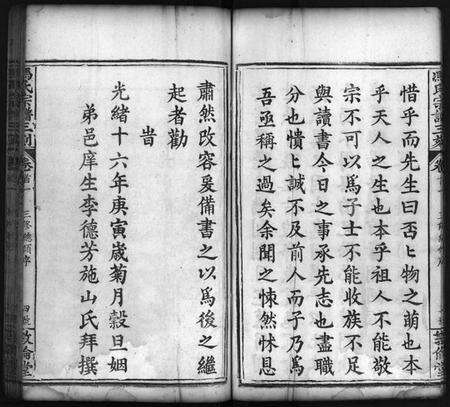 惜乎而先生曰否ヒ物之萌也本
乎天人之生也本乎祖人不能敬
宗不可以為子士不能收族不足
與讀書今日之事承先志也盡職
分也憒ヒ誠不及前人而子乃爲
吾亟稱之過矣余聞之悚然怵息
肅然改容爰備書之以爲後之繼
起者勸
旹
光緒十六年庚寅歲菊月榖旦姻
弟邑庠生李德芳施山氏拜撰
馮氏宗譜三刻
卷首
敦倫堂